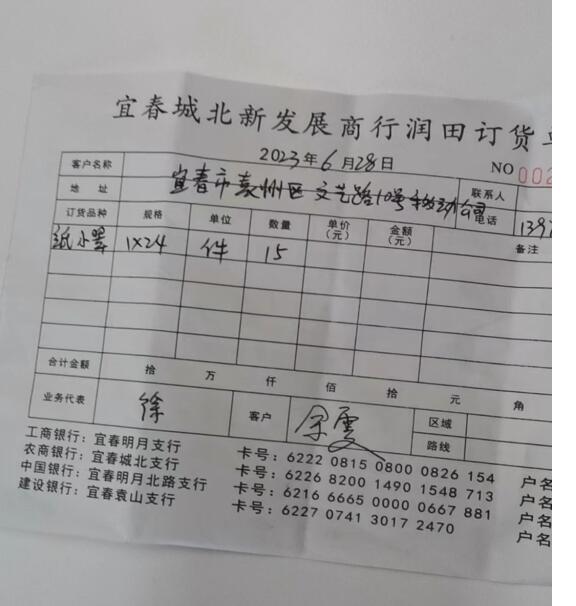 宜春城北新发展商行润田订货
2023年6月28日
NO 002
客户名称
联系人
地 址 宜春市袁州区文艺路10号移动公司 电话 1397
订货品种 规格 单位 数量 单价(元) 金额(元) 备注
纸小翠 1×24 件 15
合计金额 拾 万 仟 佰 拾 元 角
业务代表 徐 客户 区域
路线
工商银行：宜春明月支行 卡号：6222 0815 0800 0826 154 户名
农商银行：宜春城北支行 卡号：6226 8200 1490 1548 713 户名
中国银行：宜春明月北路支行 卡号：6216 6665 0000 0667 881 户名
建设银行：宜春袁山支行 卡号：6227 0741 3017 2470 户名